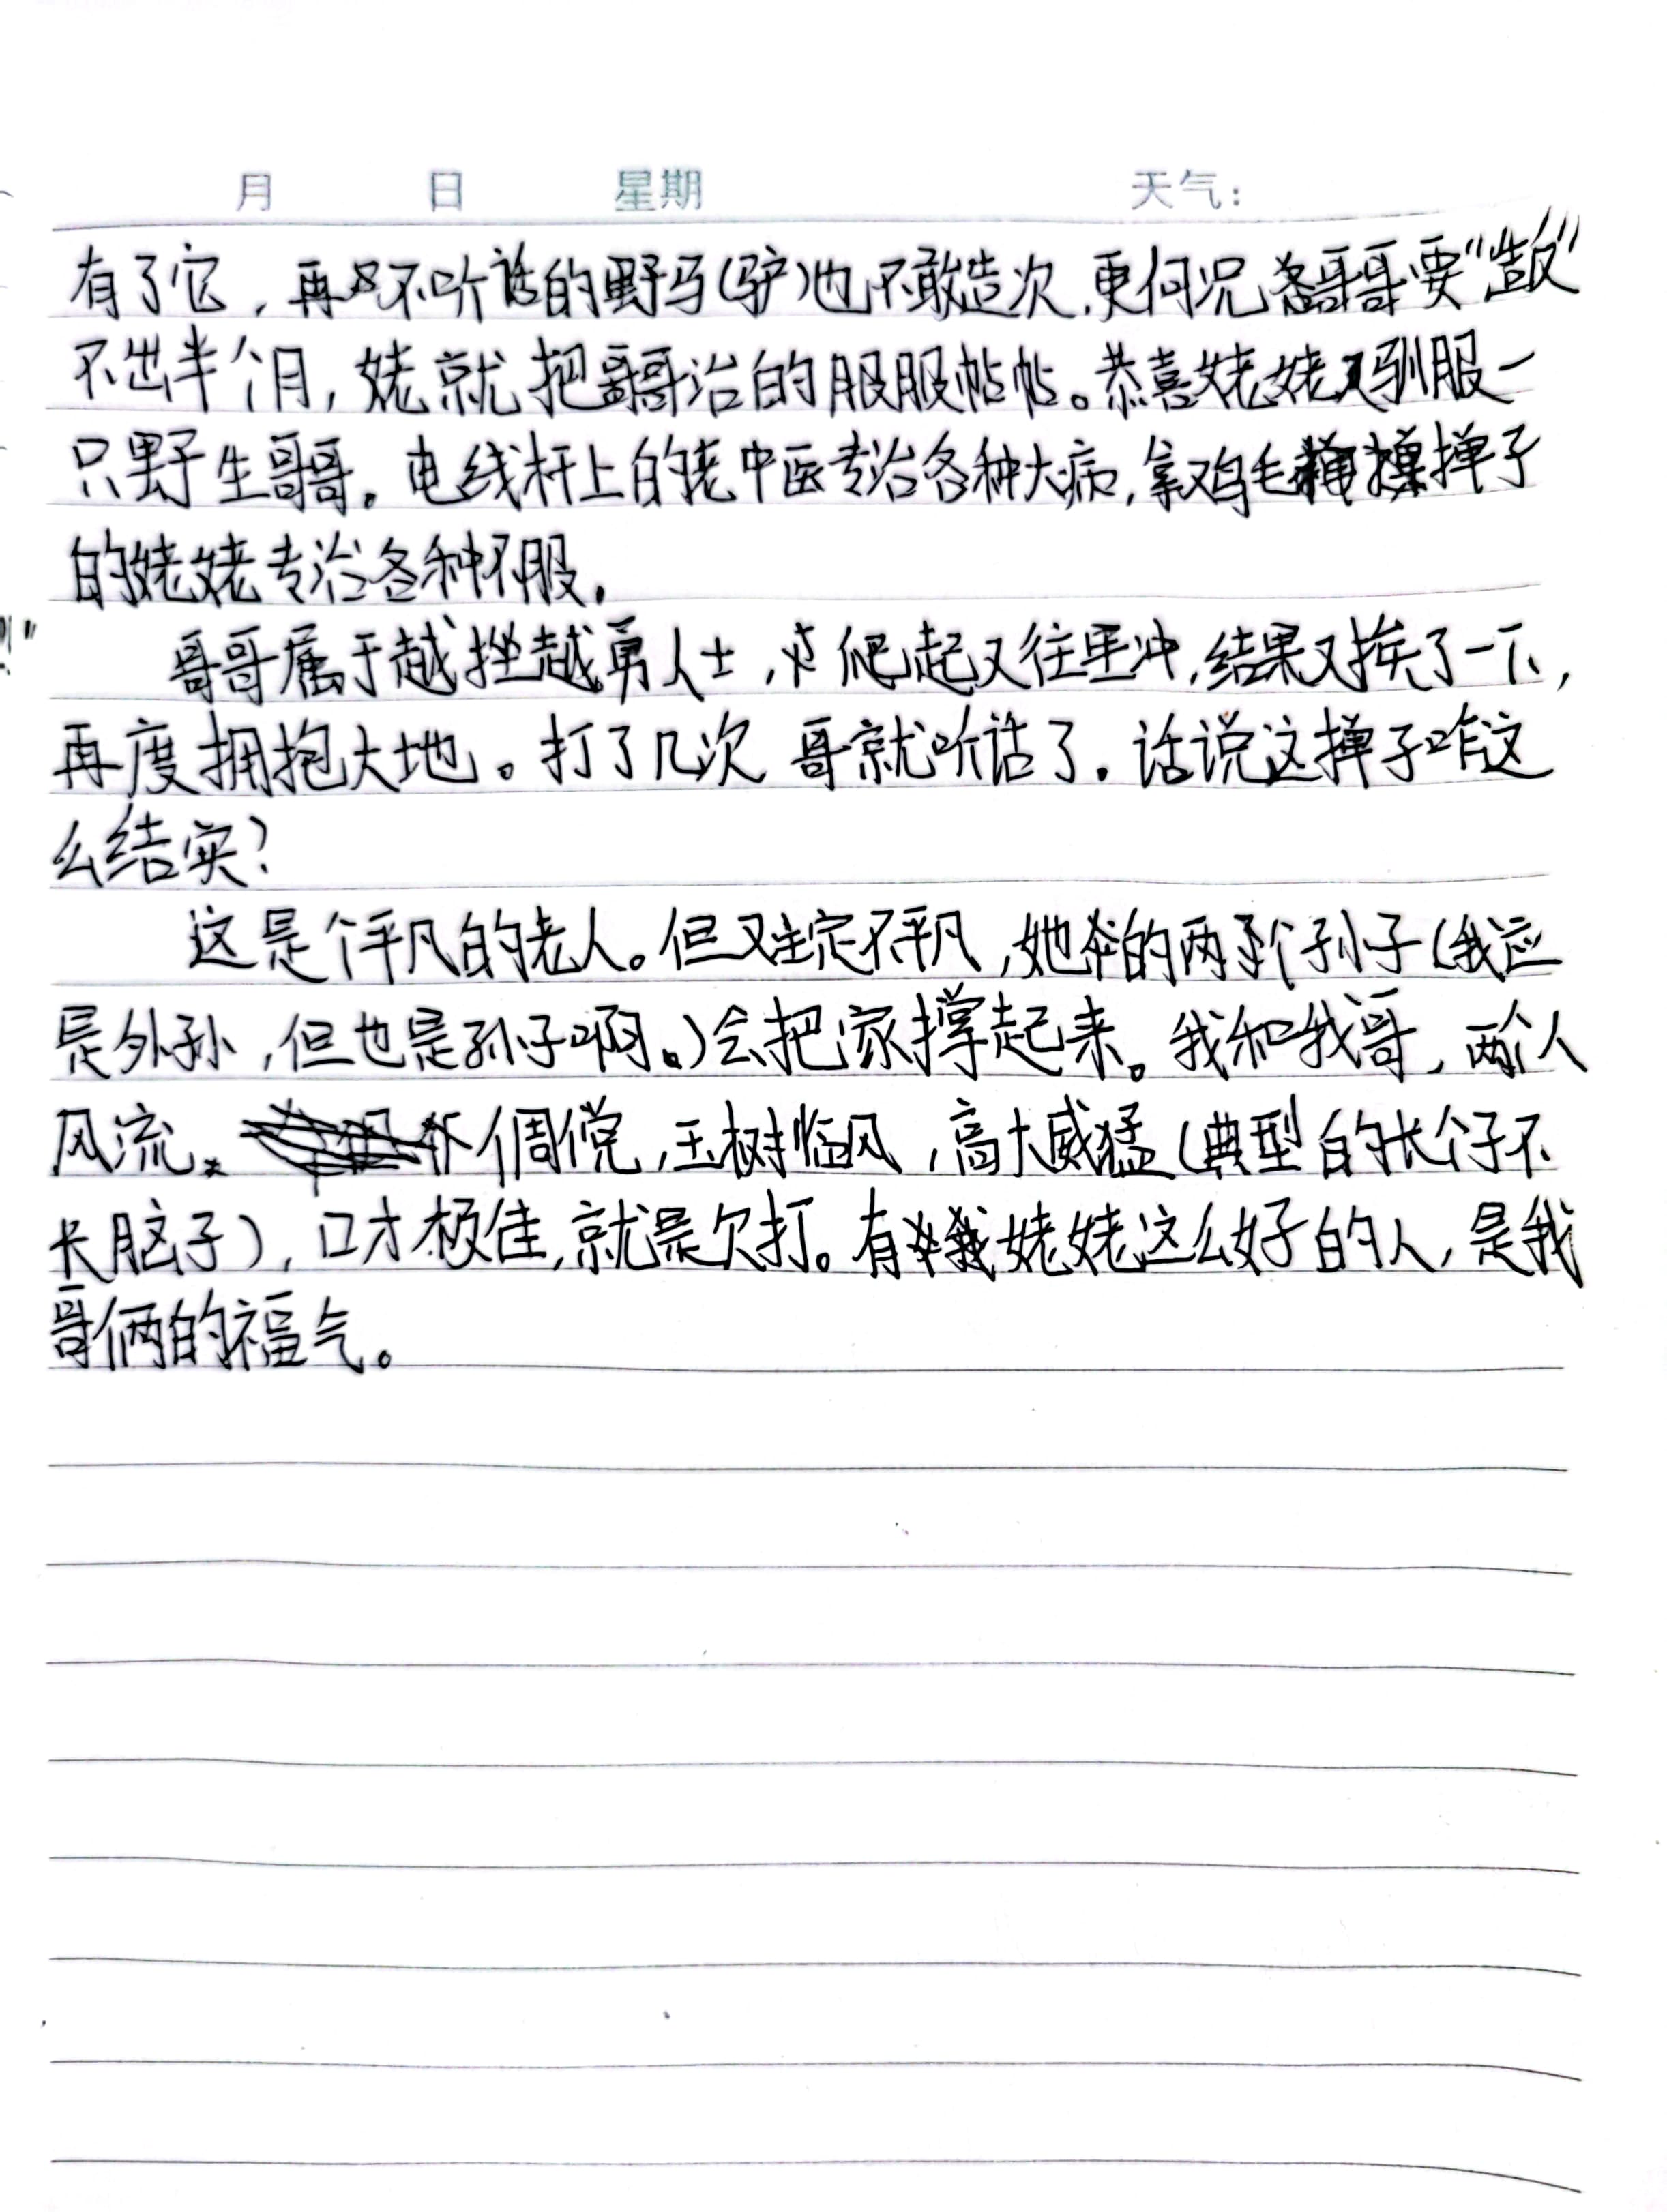 月 日 星期 天气：
有了它，再不听话的野马(驴)也不敢造次，更何况哥哥要“造反”
不出半个月，姥就把哥哥治的服服帖帖。恭喜姥姥又驯服一
只野生哥哥。电线杆上的老中医专治各种大病，拿鸡毛掸子
的姥姥专治各种不服。
哥哥属于越挫越勇人士，爬起又往里冲，结果又挨了一下，
再度拥抱大地。打了几次 哥就听话了。话说这掸子咋这
么结实？
这是个平凡的老人。但又注定不平凡，她的两个孙子(我应
是外孙，但也是孙子啊。)会把家撑起来。我和我哥，两个人
风流倜傥，玉树临风，高大威猛(典型的长个子不
长脑子)，口才极佳，就是欠打。有我姥姥这么好的人，是我
哥俩的福气。